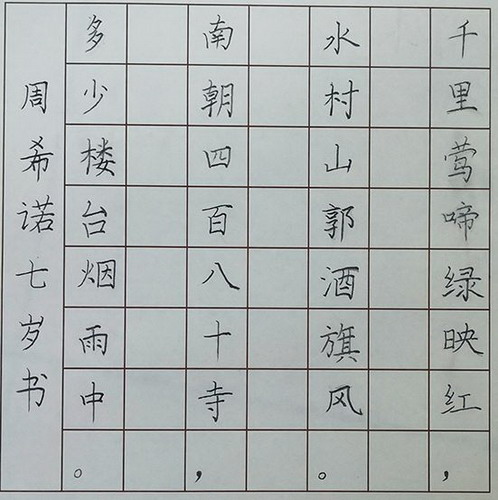 千里莺啼绿映红，
水村山郭酒旗风。
南朝四百八十寺，
多少楼台烟雨中。
周希诺七岁书